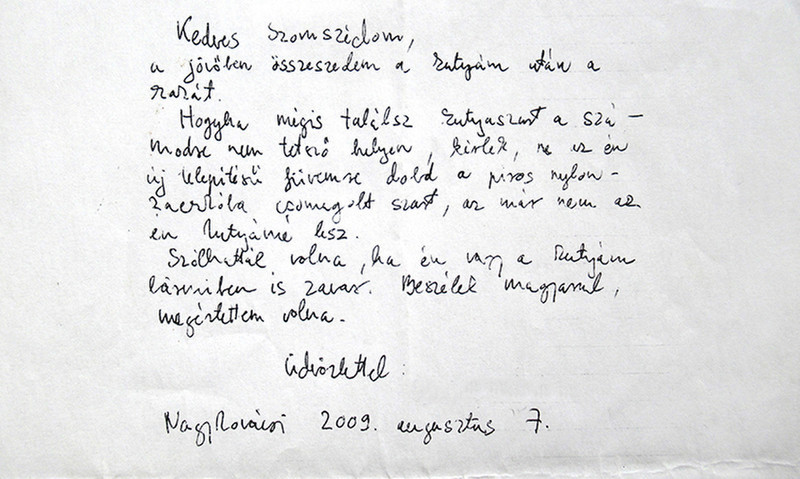 Kedves Szomszédom,
a jövőben összeszedem a kutyám után a
szart.
Hogyha mégis találsz kutyaszart a szá-
modra nem tetsző helyen, kérlek, ne az én
új telepítésű füvemre dobd a piros nylon-
zacskóba csomagolt szart, az már nem az
én kutyámé lesz.
Szólhattál volna, ha én vagy a kutyám
bármiben is zavar. Beszélek magyarul,
megértettem volna.
Üdvözlettel:
Nagykovácsi 2009. augusztus 7.